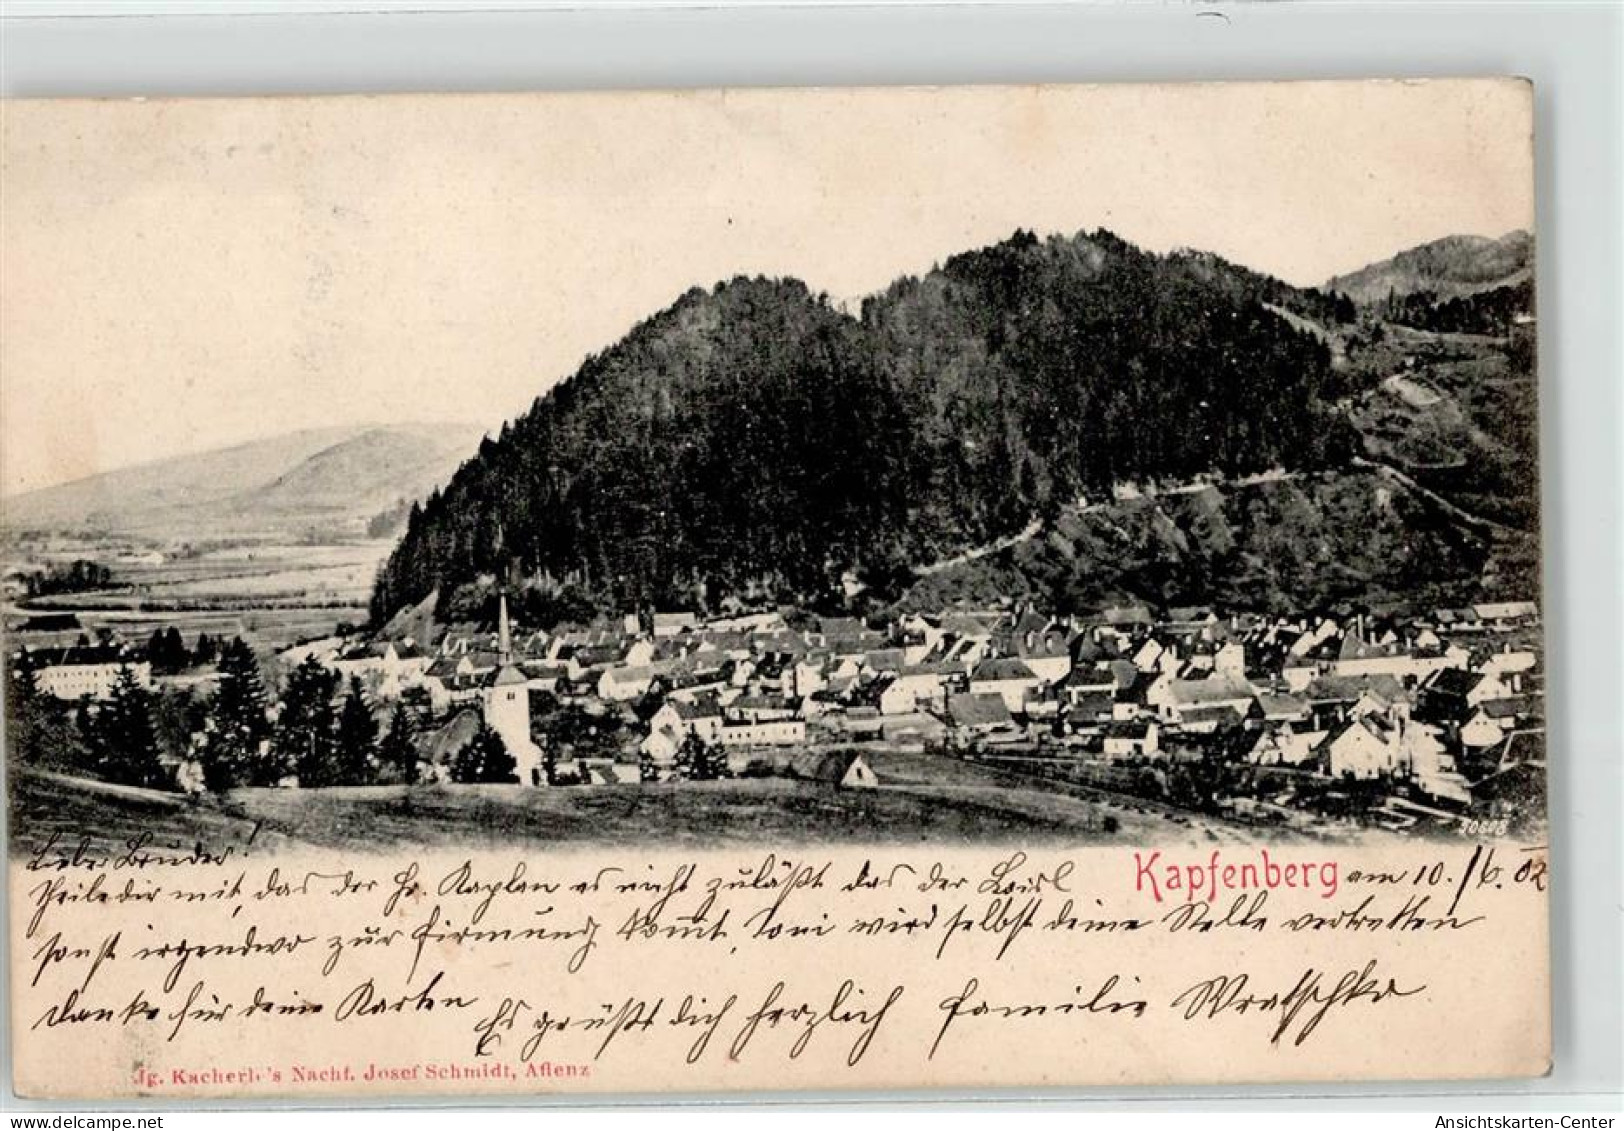 50608
Lieber Bruder!
Kapfenberg am 10./6. 02
Theile dir mit, das der Hr. Kaplan es nicht zuläßt das der Loisl
sonst irgendwo zur Firmung kommt, Toni wird selbst deine Stelle vertretten
Danke für deine Karten Es grüßt dich herzlich Familie Wratschko
Jg. Kacherl's Nachf. Josef Schmidt, Aflenz
Ansichtskarten-Center